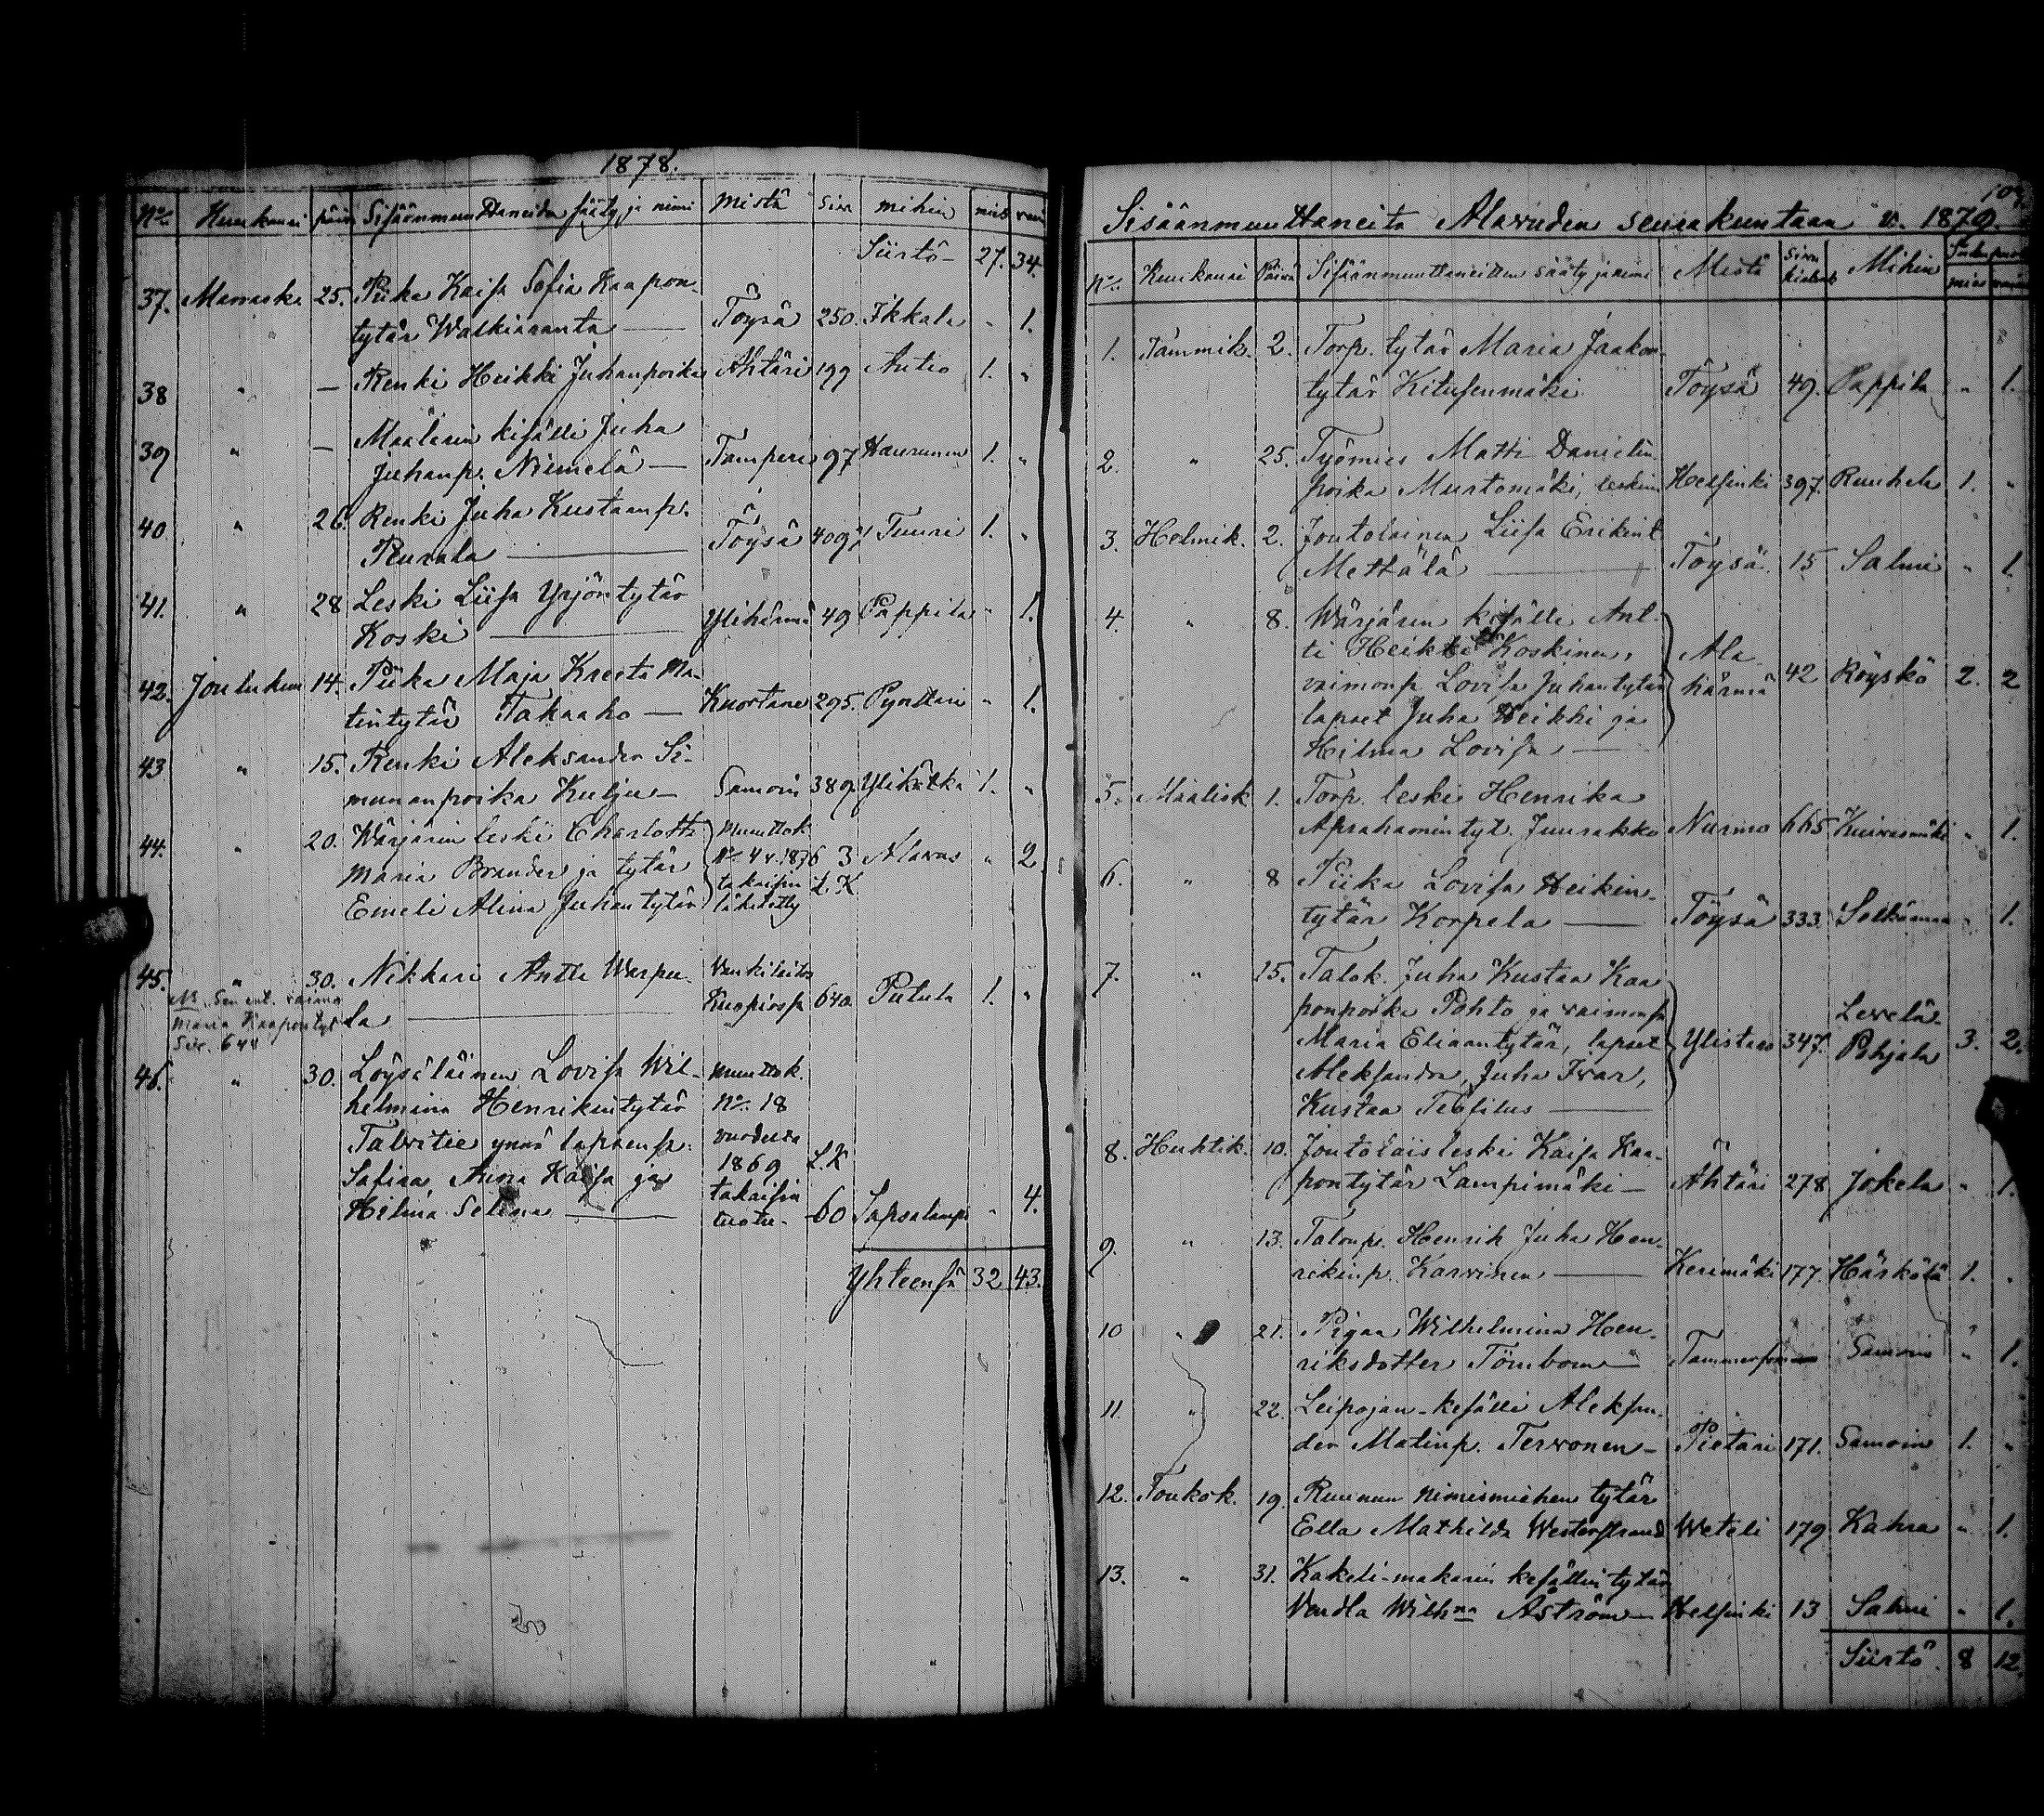 1878.
No. Kuukausi päivä Sisäänmuuttaneiden sääty ja nimi Mistä Sivu mihin mie vai
Siirto 27. 34.
37. Marrask. 25. Piika Kaisa Sofia Kaapon-
tytär Walkiaranta — Töysä 250. Ikkala " 1.
38 " — Renki Heikki Juhanpoika Ähtäri 199 Autio 1. "
39 " — Maalarin kisälli Juha
Juhanp. Niemelä — Tampere 97 Haurunen 1. "
40 " 26. Renki Juha Kustaanp.
Rurala — Töysä 409 Tuuri 1. "
41. " 28 Leski Liisa Yrjöntytär
Koski — Ylihärmä 49 Pappila " 1.
42. Joulukuu 14. Piika Maja Kreeta Ma-
tintytär Takaaho — Kuortane 295. Pynttäri " 1.
43 " 15. Renki Aleksander Si-
munanpoika Kulju — Samoin 389 Ylikätkä 1. "
44. " 20. Wärjärin leski Charlotta
Maria Brander ja tytär
Emeli Alina Juhantytär
Muuttok.
No. 4 v. 1876 3 Alavus " 2
takaisin L. K.
lähetetty
45. " 30. Nikkari Antti Warpu-
la — Vankilasta
Kuopiosta 640. Pulula 1. "
NB. Sen ent. vaimo
Maria Kaapontyt
Siv. 644
46. " 30. Löysäläinen Lovisa Wil-
helmina Henrikintytär
Talvitie ynnä lapsensa:
Safira Anna Kaisa ja
Hilma Selina —
Muuttok.
No. 18
vuodesta
1869 L.K
takaisin
tuotu - 60 Sapsalampi " 4.
Yhteensä 32 43.
107.
Sisäänmuuttaneita Alavuden seurakuntaan v. 1879.
No. Kuukausi Päivä Sisäänmuuttaneitten sääty ja nimi Mistä Sivu kirjast. Mihin Sukupuoli
1. Tammik. 2. Torp. tytär Maria Jaakon-
tytär Kitusenmäki Töysä 49. Pappila " 1.
2. " 25. Työmies Matti Danielin
poika Murtomäki, leskim. Helsinki 397. Ruuhela 1. "
3. Helmik. 2. Joutolainen Liisa Erikint.
Mettälä — Töysä 15 Salmi " 1.
4. " 8. Wärjärin kisälli Ant-
ti Heikki Koskinen,
vaimonsa Lovisa Juhantytär
lapset Juha Heikki ja
Hilma Lovisa —
Ala-
härmä 42 Röyskö 2. 2
5. Maalisk 1. Torp. leski Henrika
Aprahamintyt. Juurakko Nurmo 665 Kuivasmäki " 1.
6. " 8 Piika Lovisa Heikin-
tytär Korpela — Töysä 333. Selkämaa " 1.
7. " 15. Talok. Juha Kustaa Kaa
ponpoika Pohto ja vaimonsa
Maria Eliaantytär, lapset
Aleksandra, Juha Ivar,
Kustaa Teofilus —
Ylistaro 347. Levelä-
Pohjala 3. 2.
8. Huhtik. 10. Joutolais leski Kaisa Kaa-
pontytär Lampimäki — Ähtäri 278 Jokela " 1.
9. " 13. Talonp. Henrik Juha Hen-
rikinp. Karvinen — Kerimäki 177. Härkölä 1. "
10 " 21. Pigan Wilhelmina Hen-
riksdotter Törnbom — Tammerfors — Samoin " 1.
11. " 22. Leipojan-kesälli Aleksan-
der Matinp. Tervonen — Pietari 171. Samoin 1. "
12. Toukok. 19. Ruunun nimismiehen tytär
Ella Mathilda Westerstrand Weteli 179 Kahra " 1.
13. " 31. Kakeli-makarin kesällin tytär
Vendla Wilhna Åström — Helsinki 13 Salmi " 1.
Siirto 8 12.